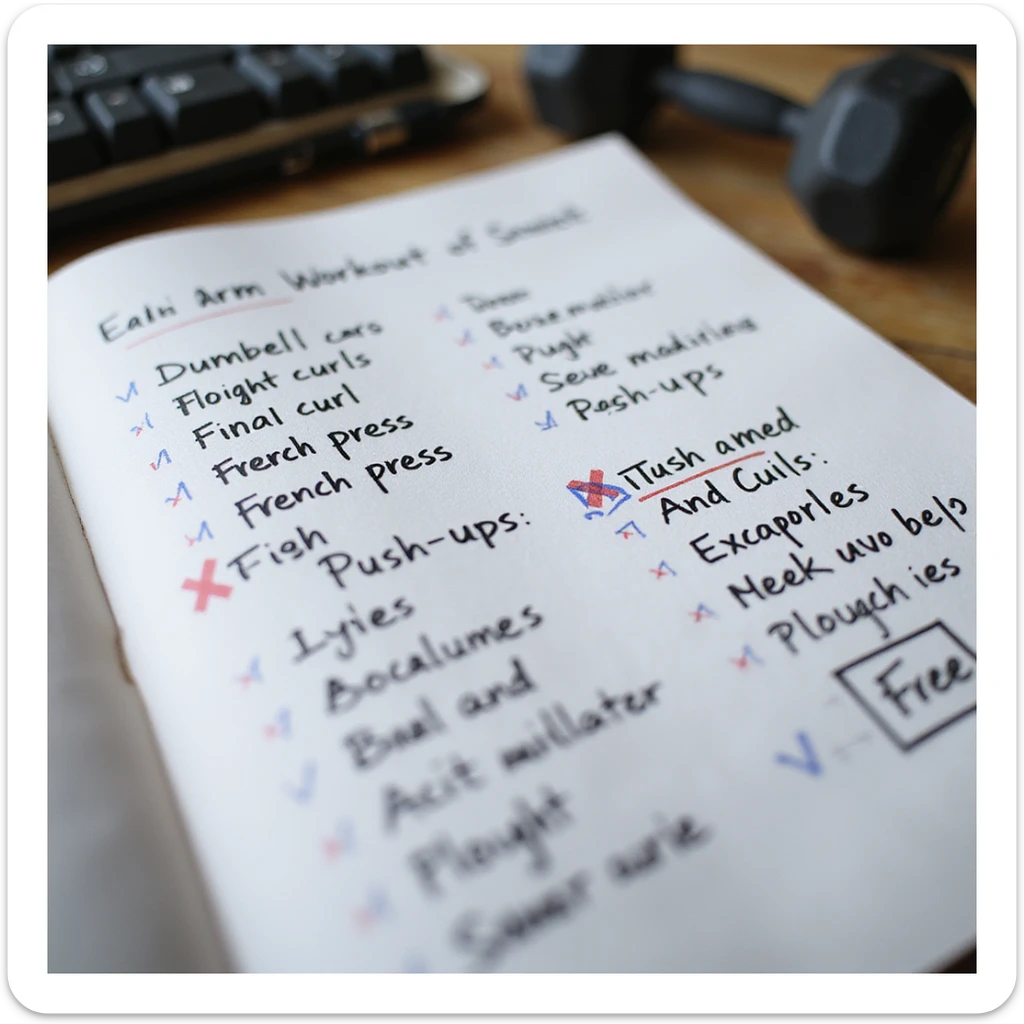 Ealni Arm Workout of
Dumbell cars
Floight curls
Final curl
Frerch press
French press
Figh
Push-ups:
Lyies
Bocalumes
Baal and
Acit millater
Plought
Pught
Seue madirines
Pash-ups
iTush amed
And Cuils:
Excaporles
Meek uvo belp
Plougch ies
Free